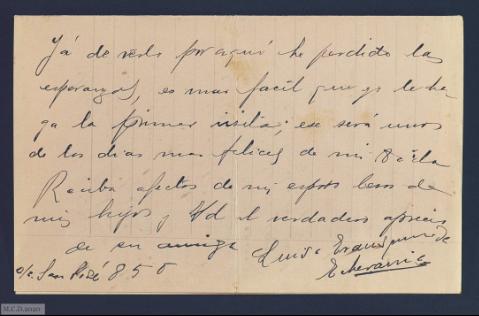 Ya de verlo por aquí he perdido las
esperanzas, es mas facil que yo le ha-
ga la primer visita; ese será unos
de los dias mas felices de mi vida
Reciba afectos de mi esposo besos de
mis hijos y Ud el verdadero aprecio
de su amiga Luisa de
c/c San José 850
M.C.D.